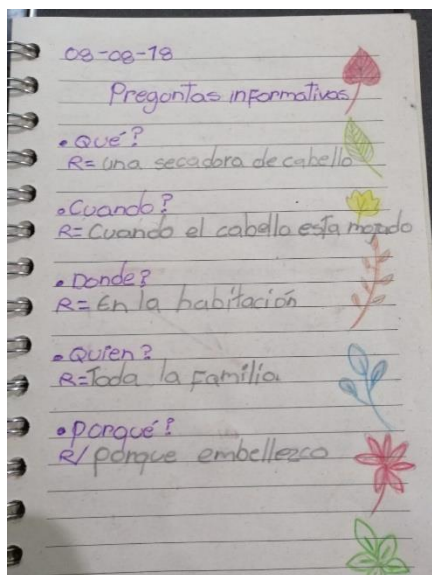 08-08-18
Pregontas informativas
• Qué?
R= una secadora de cabello
• Cuando?
R= Cuando el cabello esta mojado
• Donde?
R= En la habitación
• Quien?
R= Toda la familia
• porqué?
R/ porque embellezco